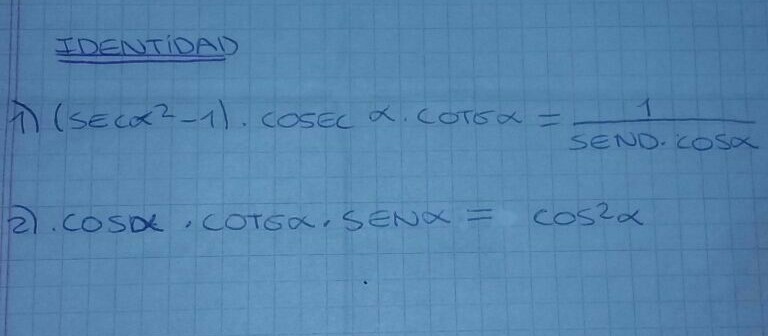 IDENTIDAD
1) (SECα²-1). COSEC α. COTGα = 1/SENO.COSα
2). COSα . COTGα. SENα = COS²α